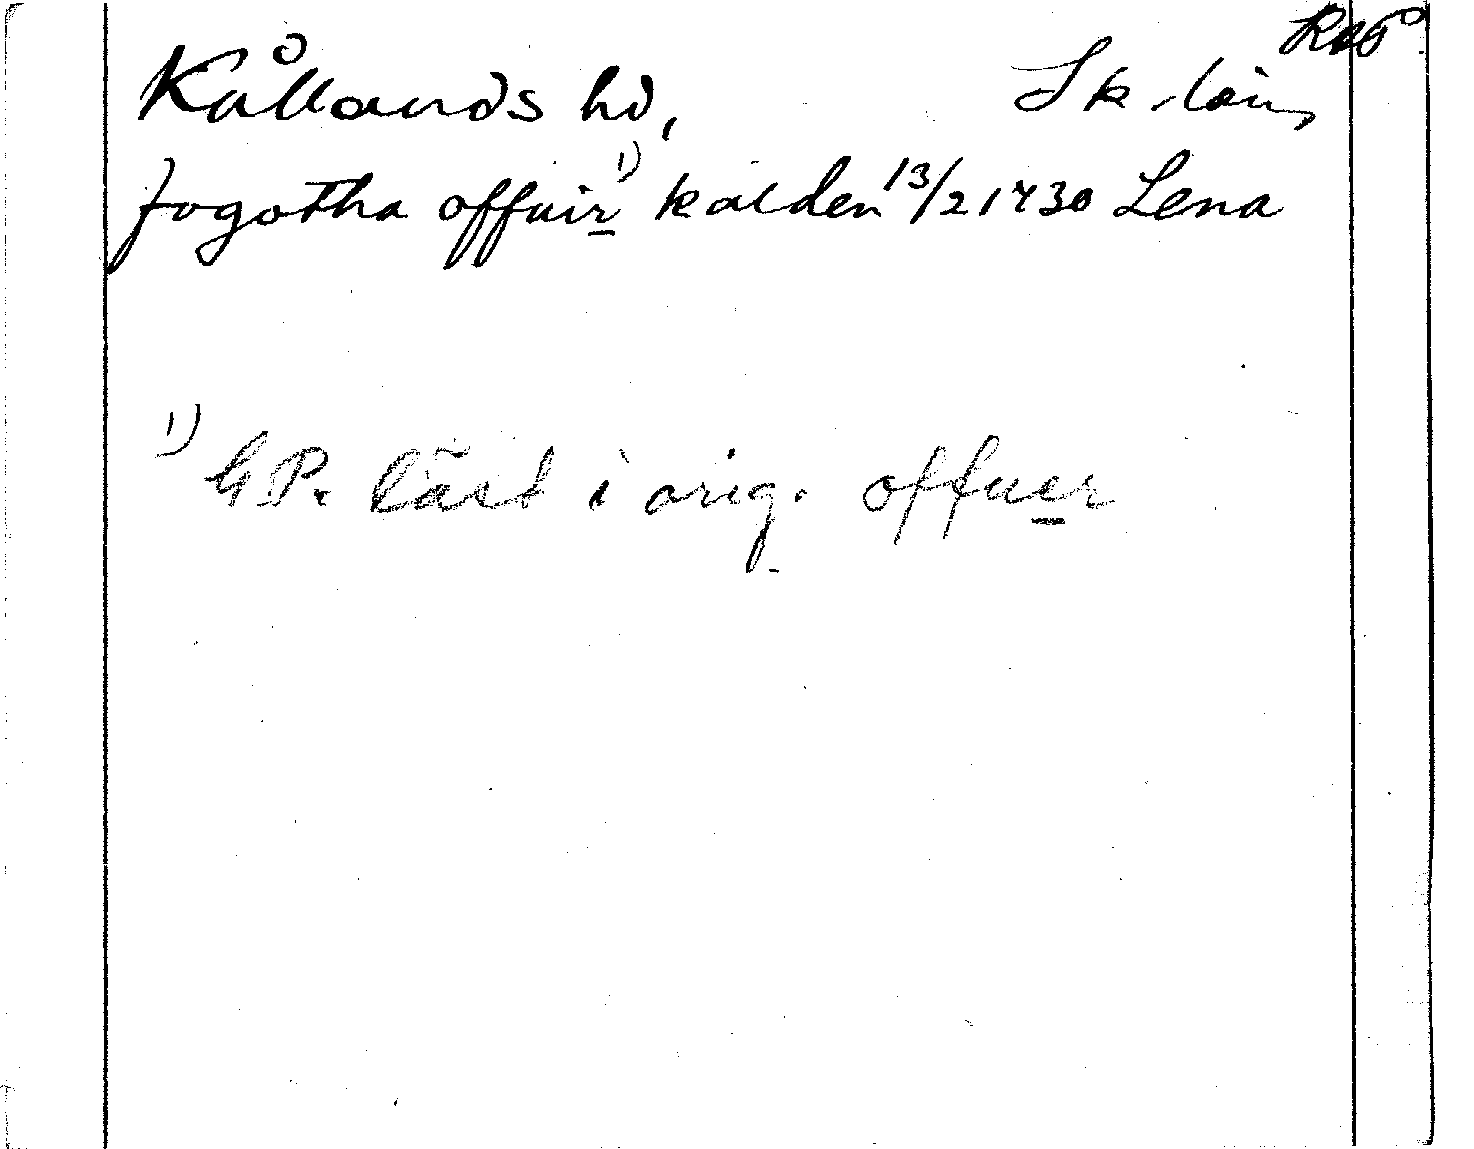 Kållands hd, Sk. län
fogotha offuir 1) kalden 13/2 1430 Lena
1) GP. läst i orig. offuer